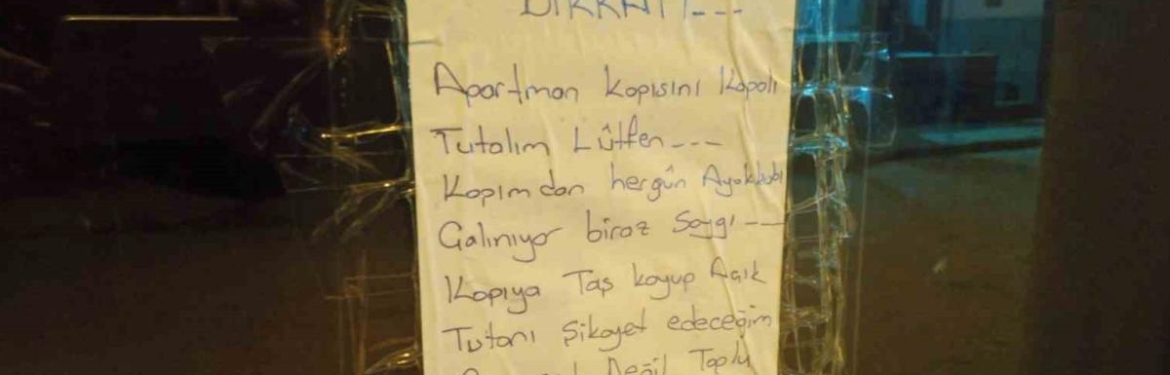 DİKKAT!---
Apartman kapısını kapalı
Tutalım Lütfen---
Kapımdan hergün Ayakkabı
Çalınıyor biraz Saygı---
Kapıya Taş koyup Açık
Tutanı şikayet edeceğim
Değil Toplu